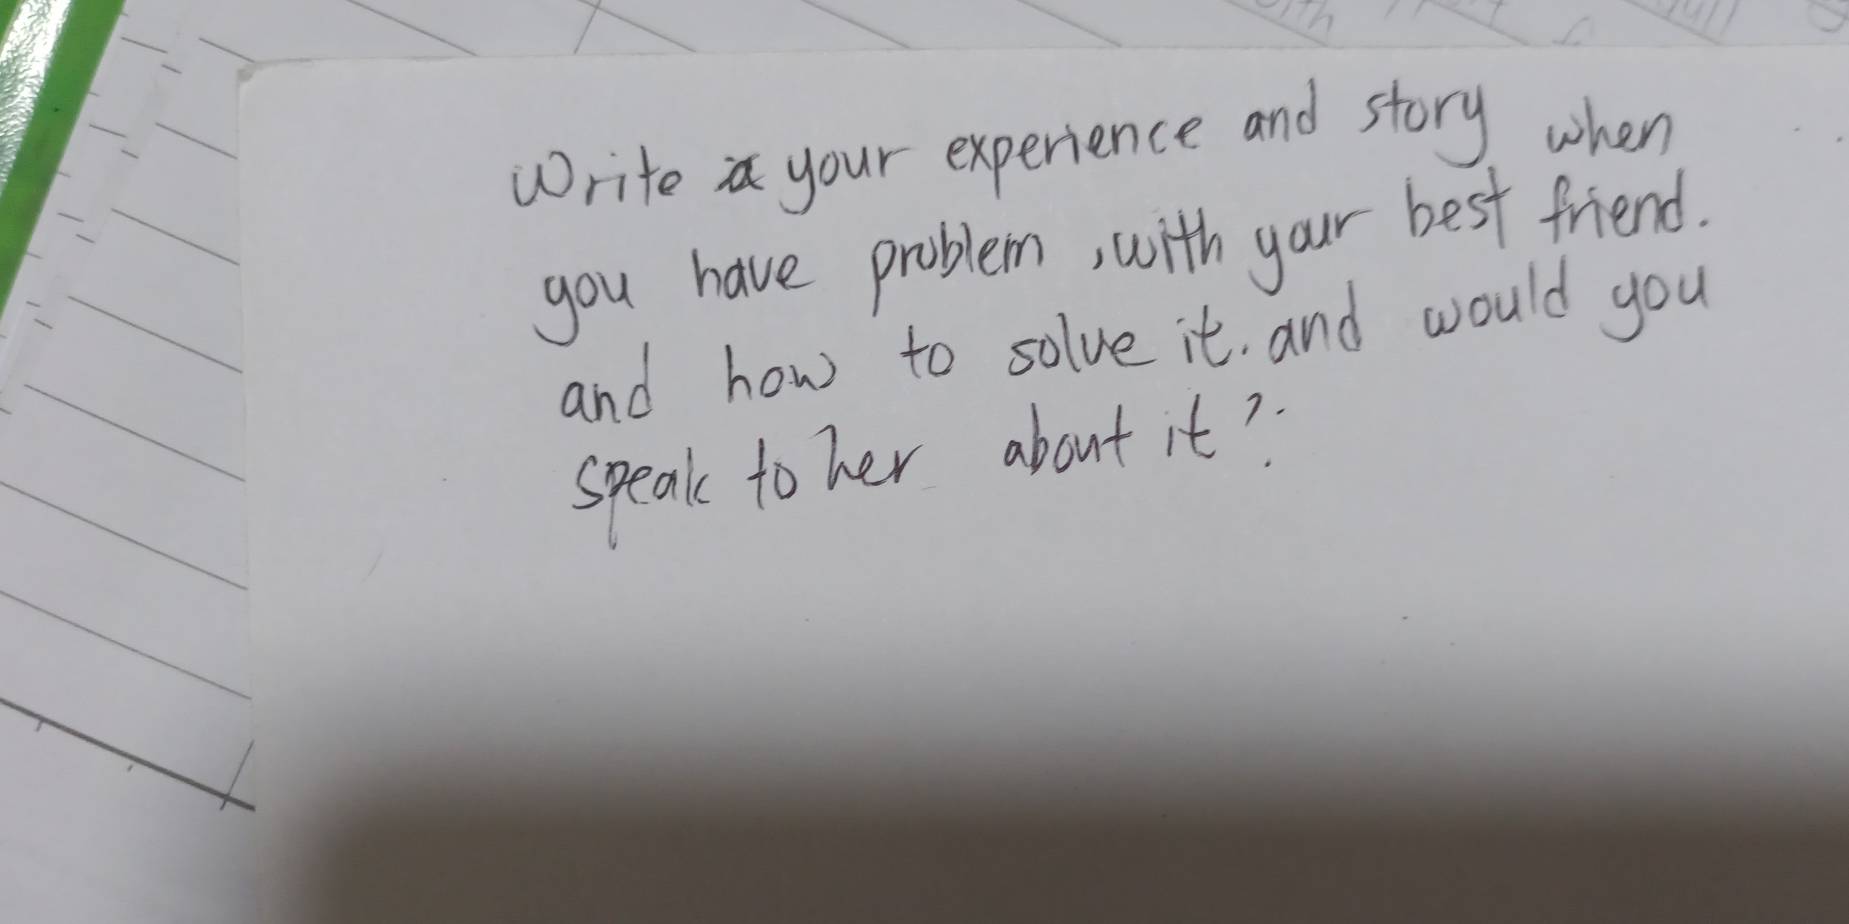 Write your experience and story when
you have problem, with your best friend.
and how to solve it. and would you
speak to her about it?.